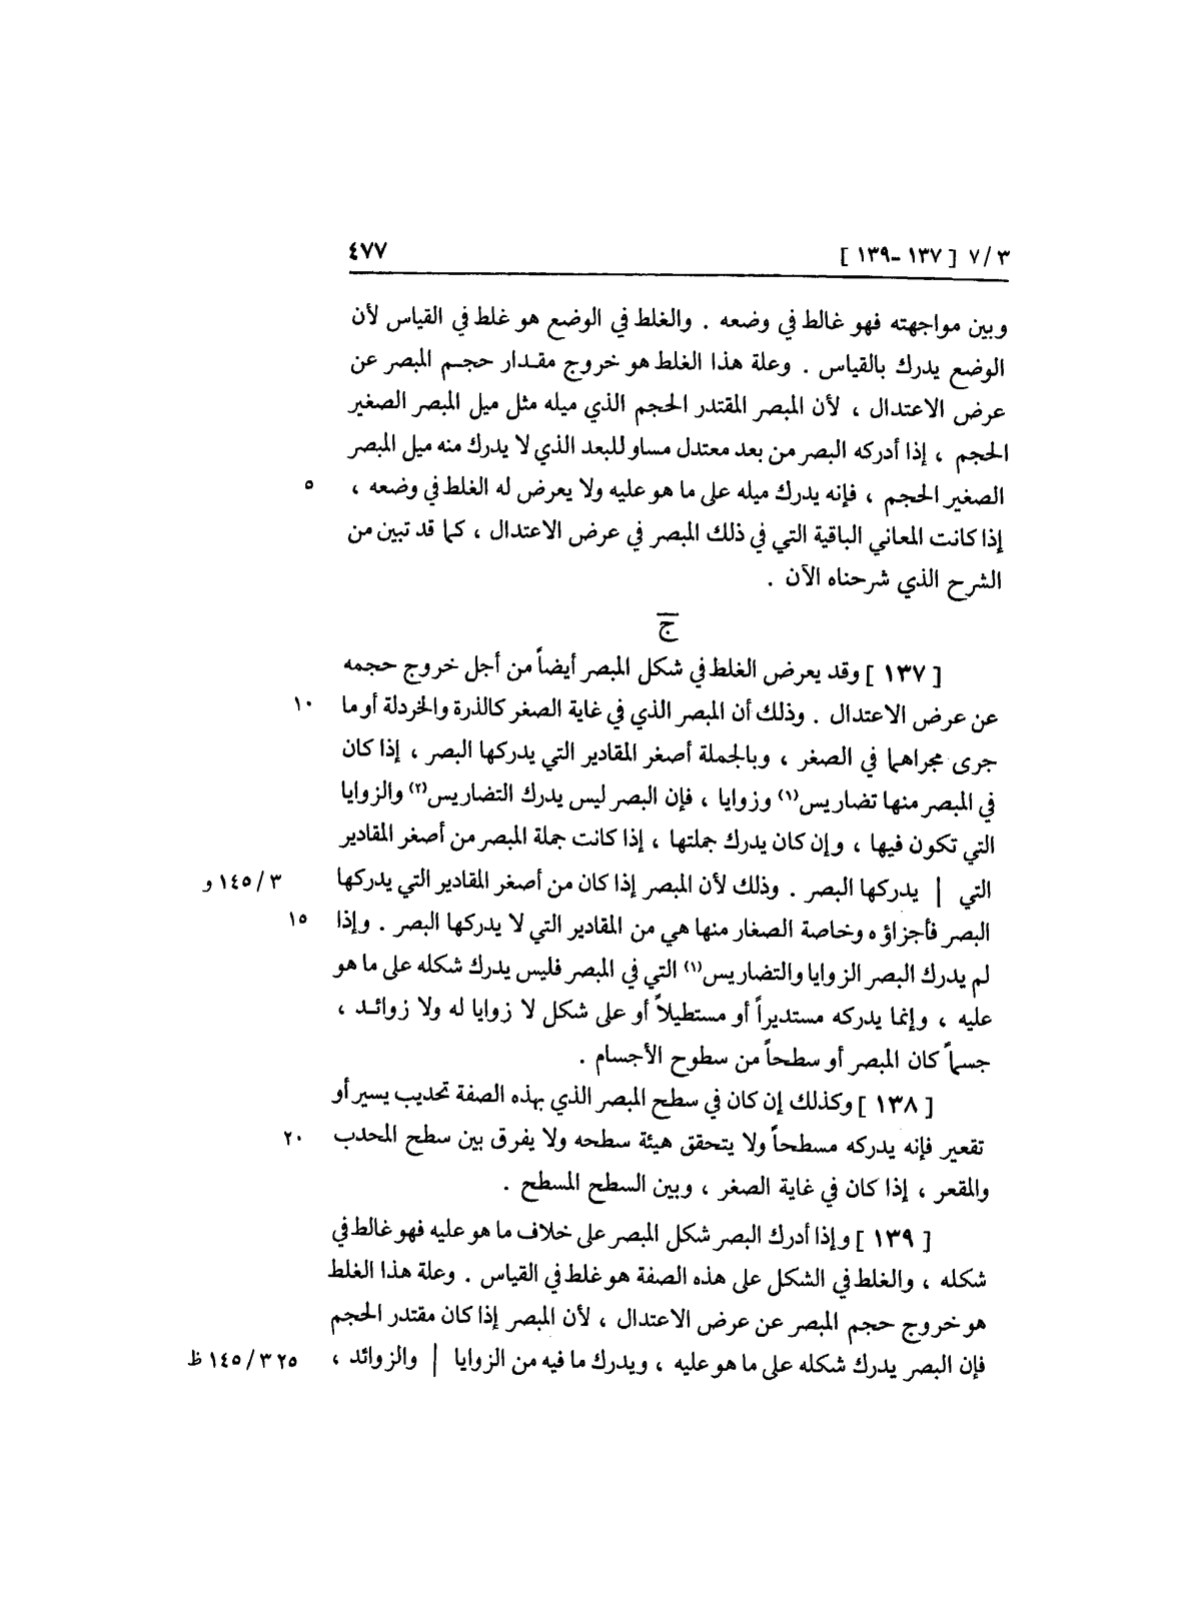 ٣ / ٧ [ ١٣٧ – ١٣٩ ] ٤٧٧
وبين مواجهته فهو غالط في وضعه . والغلط في الوضع هو غلط في القياس لأن
الوضع يدرك بالقياس . وعلة هذا الغلط هو خروج مقدار حجم المبصر عن
عرض الاعتدال ، لأن المبصر المقتدر الحجم الذي ميله مثل ميل المبصر الصغير
الحجم ، إذا أدركه البصر من بعد معتدل مساو للبعد الذي لا يدرك منه ميل المبصر
الصغير الحجم ، فإنه يدرك ميله على ما هو عليه ولا يعرض له الغلط في وضعه ، ٥
إذا كانت المعاني الباقية التي في ذلك المبصر في عرض الاعتدال ، كما قد تبين من
الشرح الذي شرحناه الآن .
ج
[ ١٣٧ ] وقد يعرض الغلط في شكل المبصر أيضاً من أجل خروج حجمه
عن عرض الاعتدال . وذلك أن المبصر الذي في غاية الصغر كالذرة والخردلة أو ما ١٠
جرى مجراهما في الصغر ، وبالجملة أصغر المقادير التي يدركها البصر ، إذا كان
في المبصر منها تضاريس(١) وزوايا ، فإن البصر ليس يدرك التضاريس(٢) والزوايا
التي تكون فيها ، وإن كان يدرك جملتها ، إذا كانت جملة المبصر من أصغر المقادير
التي | يدركها البصر . وذلك لأن المبصر إذا كان من أصغر المقادير التي يدركها ٣ / ١٤٥ و
البصر فأجزاؤه وخاصة الصغار منها هي من المقادير التي لا يدركها البصر . وإذا ١٥
لم يدرك البصر الزوايا والتضاريس(١) التي في المبصر فليس يدرك شكله على ما هو
عليه ، وإنما يدركه مستديراً أو مستطيلاً أو على شكل لا زوايا له ولا زوائد ،
جسماً كان المبصر أو سطحاً من سطوح الأجسام .
[ ١٣٨ ] وكذلك إن كان في سطح المبصر الذي بهذه الصفة تحديب يسير أو
تقعير فإنه يدركه مسطحاً ولا يتحقق هيئة سطحه ولا يفرق بين سطح المحدب ٢٠
والمقعر ، إذا كان في غاية الصغر ، وبين السطح المسطح .
[ ١٣٩ ] وإذا أدرك البصر شكل المبصر على خلاف ما هو عليه فهو غالط في
شكله ، والغلط في الشكل على هذه الصفة هو غلط في القياس . وعلة هذا الغلط
هو خروج حجم المبصر عن عرض الاعتدال ، لأن المبصر إذا كان مقتدر الحجم
فإن البصر يدرك شكله على ما هو عليه ، ويدرك ما فيه من الزوايا | والزوائد ، ٢٥ ٣ / ١٤٥ ظ